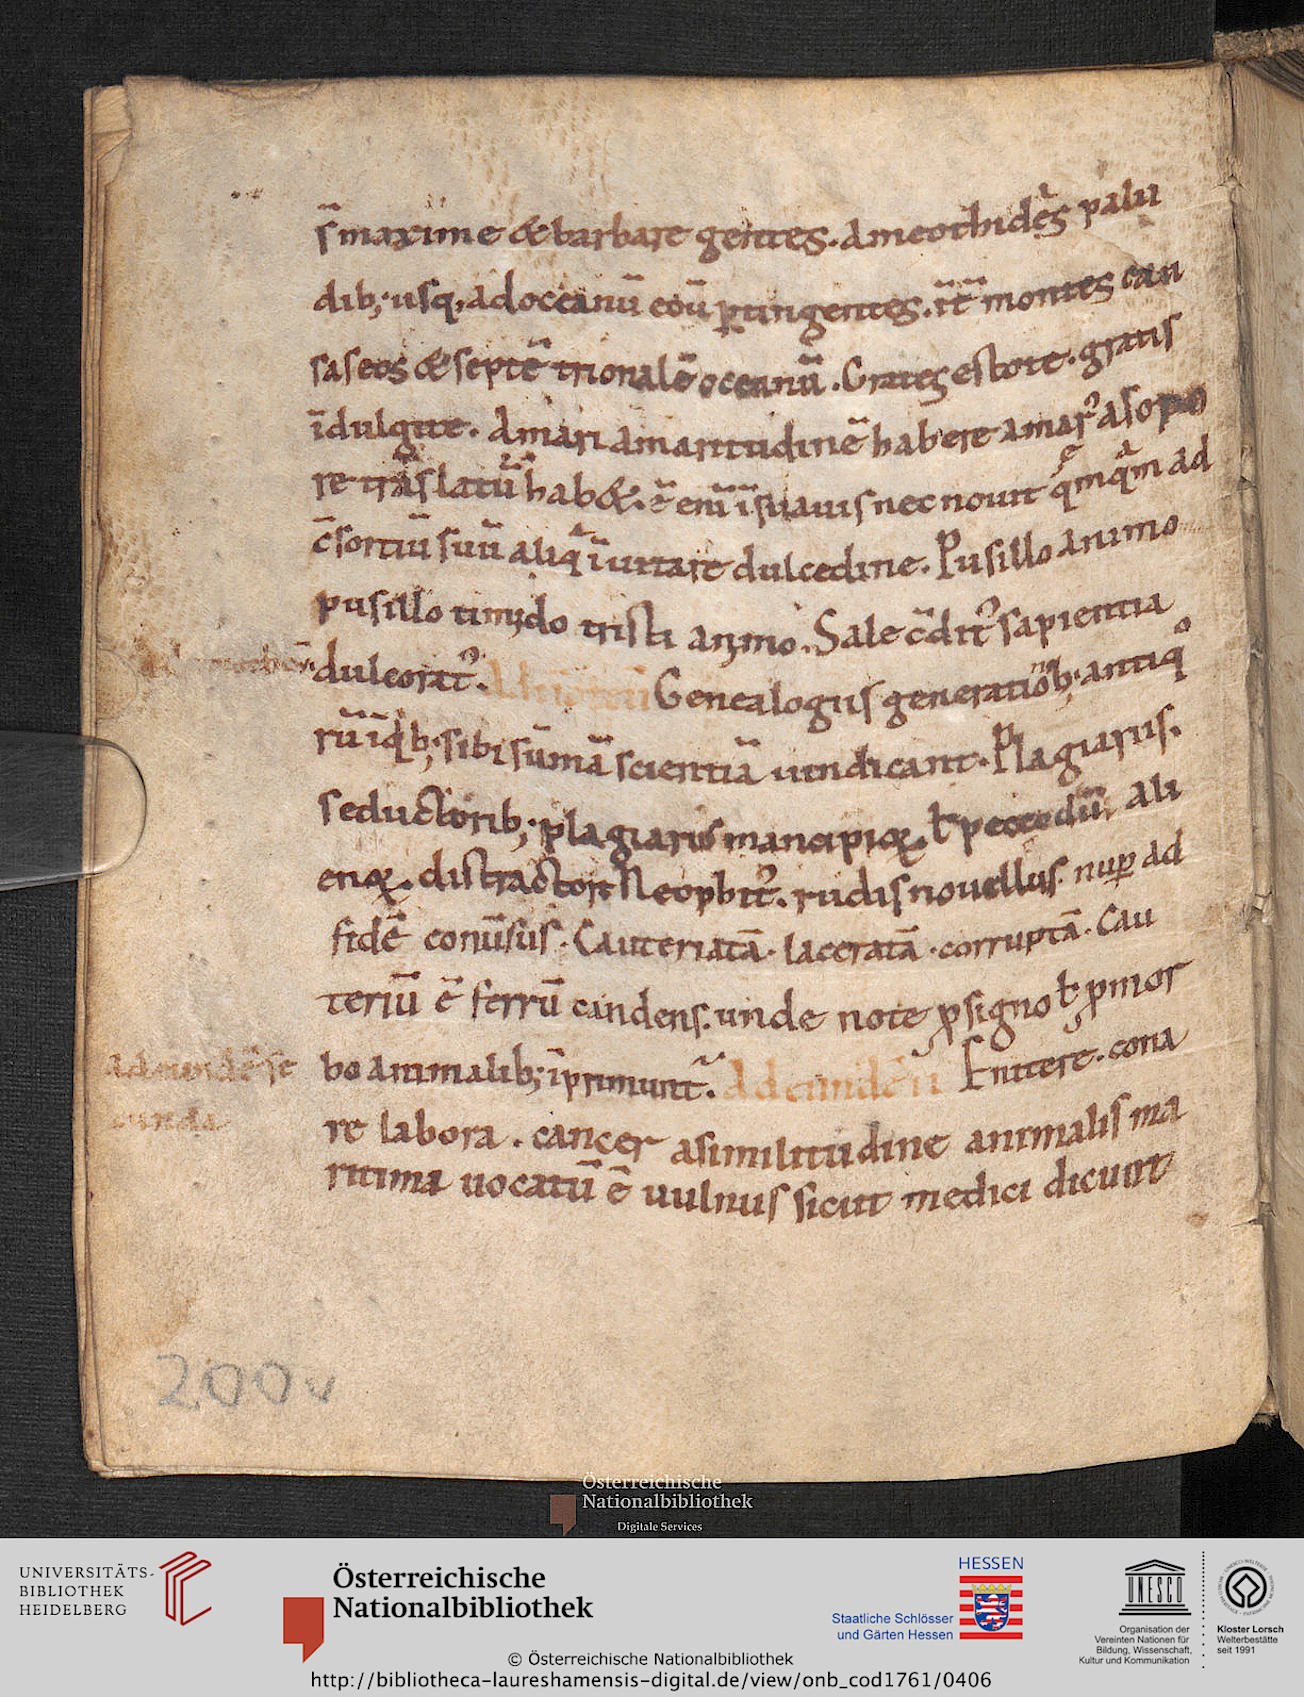 s̄ maxime & barbare gentes. a meothides palu
dib; usq, ad oceanū eoū ꝑtingentes. īt̄ montes cau
saseos & septē trionalē oceanū. Grates estote. gratis
īdulgite. Amari amaritudinē habere amar̉ a sapo
re trāslatū hab&. ē enī īsuauis nec nouit quēmquam ad
c̄sortiū suū aliq̄ īuitare dulcedine. Pusillo animo
pusillo timido tristi animo. Sale c̄dit̉ sapientia
dulcorat̉. Genealogus generationib; antiquo
rū īquib; sibi sūmā scientiā uindicant. Plagiariis.
seductorib; plagiarius mancipioꝝ. ł peccedū ali
enoꝝ. distractor. Neophit̉. rudis nouellus. nuꝑ ad
fidē conūsus. Cauteriatā. laceratā. corruptā. Cau
teriū ē ferrū candens. unde note ꝓ signo ł ꝓ mor
bo animalib; īprimunt̉. Ad eundē ii Enitere. cona
Ad eundē se
cunda
re labora. cancer a similitudine animalis ma
ritima uocatū ē uulnus sicut medici dicunt
200v
Österreichische
Nationalbibliothek
Digitale Services
UNIVERSITÄTS-
BIBLIOTHEK
HEIDELBERG
Österreichische
Nationalbibliothek
HESSEN
Staatliche Schlösser
und Gärten Hessen
UNESCO
Organisation der
Vereinten Nationen für
Bildung, Wissenschaft,
Kultur und Kommunikation
Kloster Lorsch
Welterbestätte
seit 1991
© Österreichische Nationalbibliothek
http://bibliotheca-laureshamensis-digital.de/view/onb_cod1761/0406